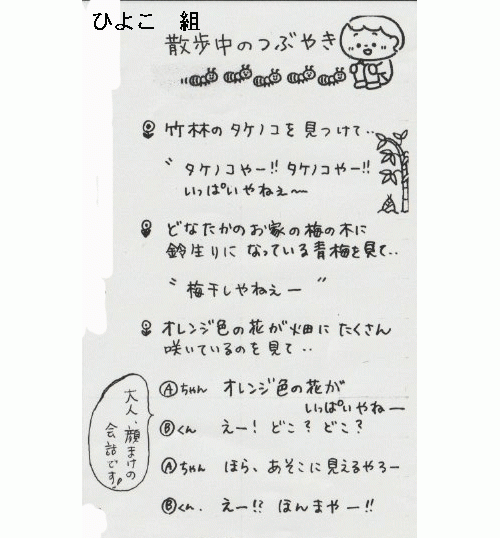 ひよこ 組
散歩中のつぶやき
竹林のタケノコを見つけて‥
〝タケノコやー!! タケノコやー!!
いっぱいやねぇ〜
どなたかのお家の梅の木に
鈴生りになっている青梅を見て‥
〝梅干しやねぇー〃
オレンジ色の花が畑にたくさん
咲いているのを見て‥
Ⓐちゃん オレンジ色の花が
いっぱいやねー
Ⓑくん えー! どこ? どこ?
Ⓐちゃん ほら、あそこに見えるやろー
Ⓑくん. えー!? ほんまやー!!
大人、顔まけの
会話です!